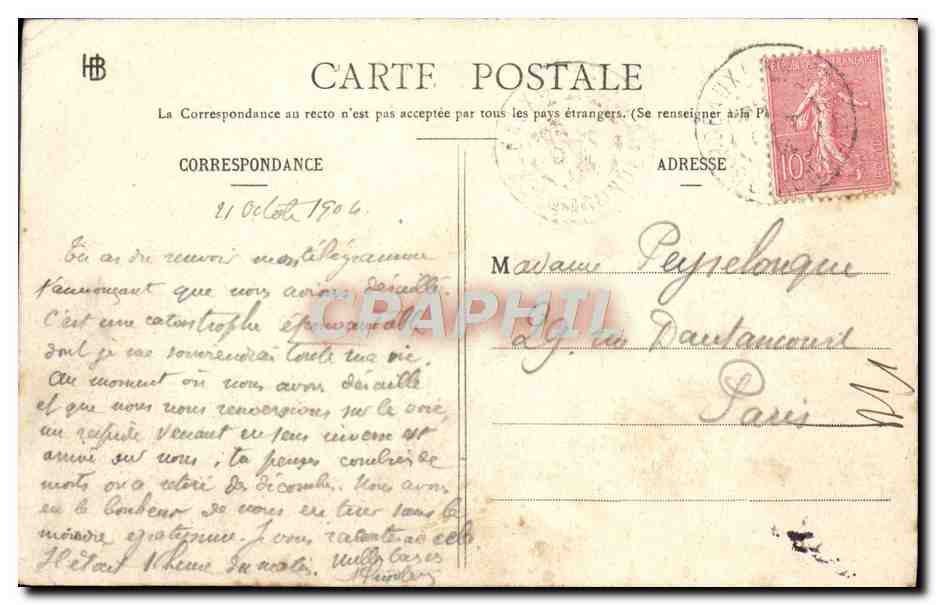 HB
CARTE POSTALE
La Correspondance au recto n'est pas acceptée par tous les pays étrangers. (Se renseigner à la P
CORRESPONDANCE
ADRESSE
REPUBLIQUE FRANÇAISE
10c
POSTES
21 Octobre 1904.
Tu as du recevoir mon télégramme
t'annonçant que nous avions déraillé
C'est une catastrophe épouvantable
dont je me souviendrai toute ma vie.
Au moment où nous avons déraillé
et que nous nous renversions sur la voie,
un rapide venant en sens inverse est
arrivé sur nous, tu penses combien de
morts on a retiré des décombres. Nous avons
eu le bonheur de nous en tirer sans la
moindre égratignure. Je vous raconterai cela
Il était 1 heure du matin. Mille baisers
Madame Peyrelongue
29, rue Dautancourt
Paris
CPAPHIL